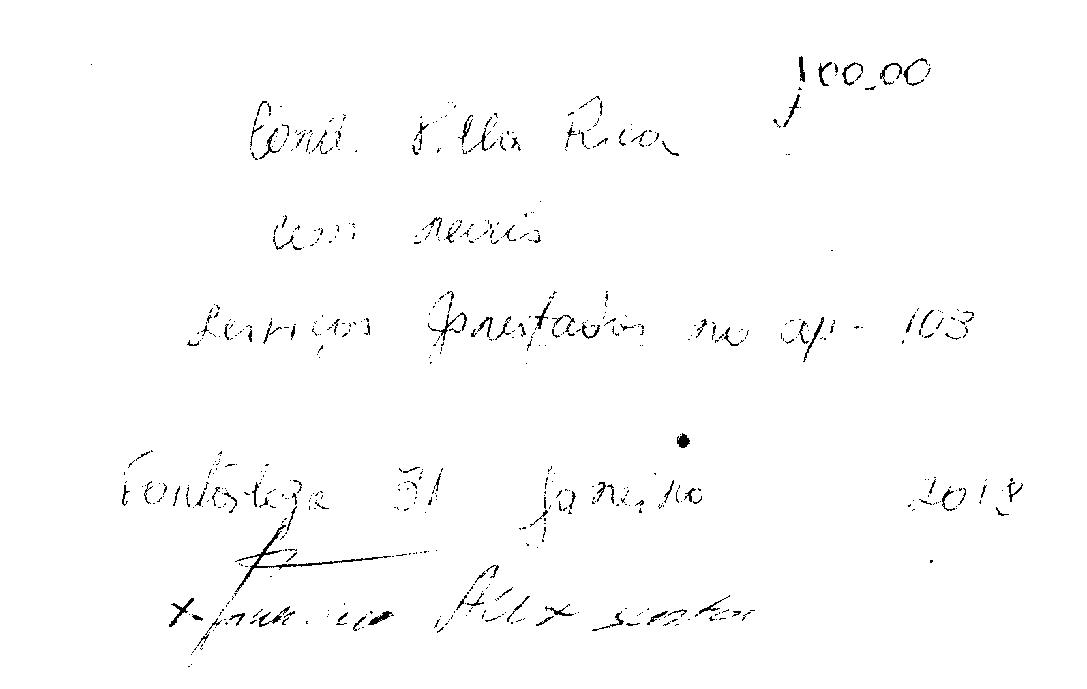 100,00
Cond. Villa Rica
cem reais
serviços Prestados no ap - 103
Fortaleza 31 Janeiro 2018
x Francisco Alex